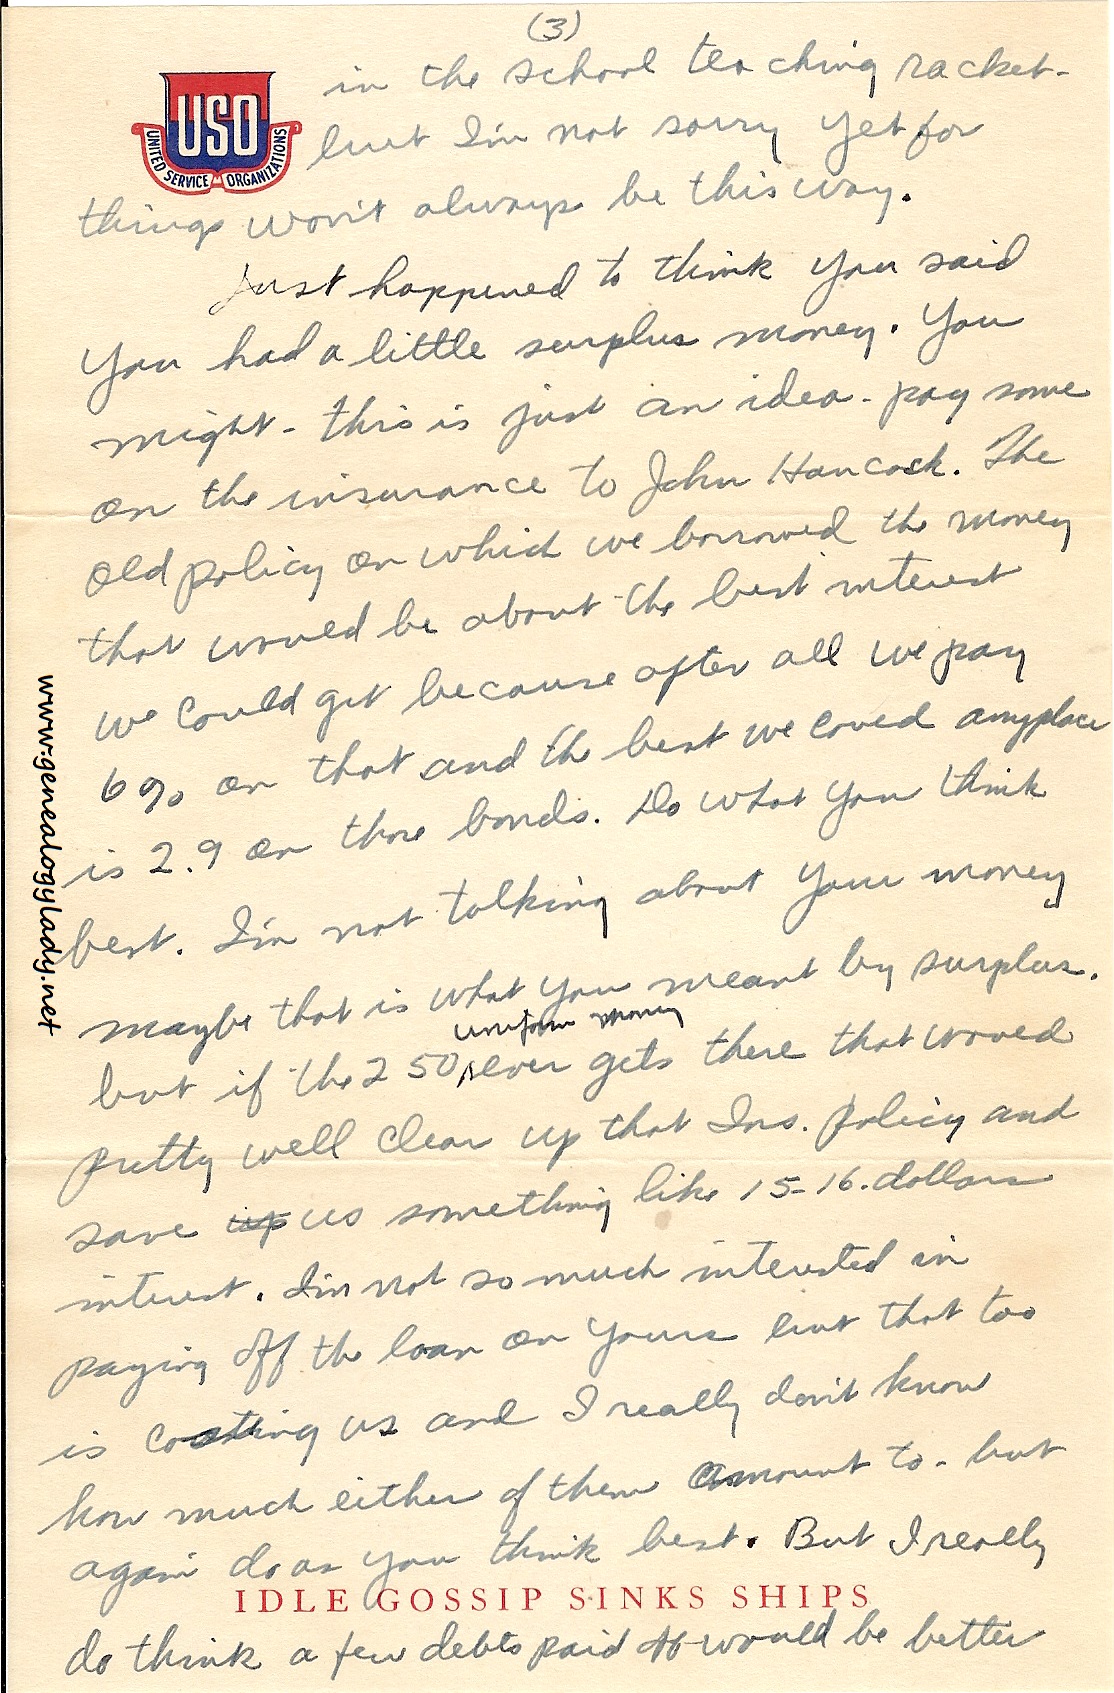 (3)
USO
UNITED SERVICE ORGANIZATIONS
in the school teaching racket-
but I'm not sorry yet for
things won't always be this way.
Just happened to think you said
you had a little surplus money. You
might - this is just an idea - pay some
on the insurance to John Hancock. The
old policy on which we borrowed the money
that would be about the best interest
we could get because after all we pay
6% on that and the best we coved anyplace
is 2.9 on those bonds. Do what you think
best. I'm not talking about your money
maybe that is what you meant by surplus.
uniform money
but if the 250 ever gets there that woved
pretty well clear up that Ins. policy and
save up us something like 15-16. dollars
interest. I'm not so much interested in
paying off the loan on yours but that too
is costing us and I really don't know
how much either of them amount to - but
again do as you think best. But I really
IDLE GOSSIP SINKS SHIPS
do think a few debts paid off would be better
www.genealogylady.net